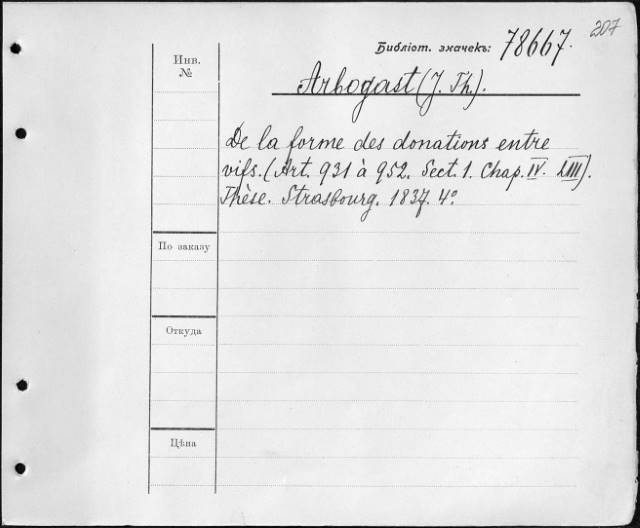 207
Библіот. значекъ: 78667.
Инв.
№
Arbogast (J. Th.).
De la forme des donations entre
vifs. (Art. 931 à 952. Sect. 1. Chap. IV. LIII).
Thèse. Strasbourg. 1837. 4º
По заказу
Откуда
Цѣна